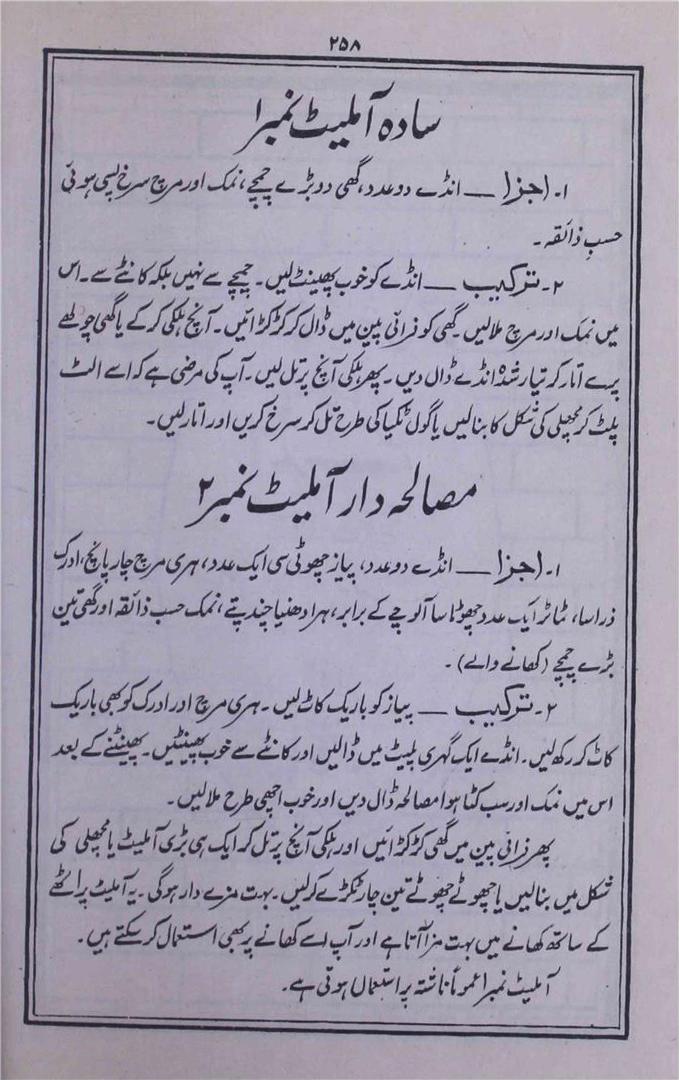 ۲۵۸
سادہ آملیٹ نمبر۱
۱۔ اجزا — انڈے دو عدد، گھی دو بڑے چمچے، نمک اور مرچ سرخ پسی ہوئی
حسبِ ذائقہ۔
۲۔ ترکیب — انڈے کو خوب پھینٹ لیں۔ چمچے سے نہیں بلکہ کانٹے سے۔ اس
میں نمک اور مرچ ملا لیں۔ گھی کو فرائی پین میں ڈال کر کڑکڑائیں۔ آنچ ہلکی کر کے یا گھی چولھے
پر سے اتار کر تیار شدہ انڈے ڈال دیں۔ پھر ہلکی آنچ پر تل لیں۔ آپ کی مرضی ہے کہ اسے الٹ
پلٹ کر مچھلی کی شکل کا بنا لیں یا گول ٹکیا کی طرح تل کر سرخ کریں اور اتار لیں۔
مصالحہ دار آملیٹ نمبر ۲
۱۔ اجزا — انڈے دو عدد، پیاز چھوٹی سی ایک عدد، ہری مرچ چار پانچ، ادرک
ذرا سا، ٹماٹر ایک عدد چھوٹا سا آلوچے کے برابر، ہرا دھنیا چند پتے، نمک حسب ذائقہ اور گھی تین
بڑے چمچے (کھانے والے)۔
۲۔ ترکیب — پیاز کو باریک کاٹ لیں۔ ہری مرچ اور ادرک کو بھی باریک
کاٹ کر رکھ لیں۔ انڈے ایک گہری پلیٹ میں ڈالیں اور کانٹے سے خوب پھینٹیں۔ پھینٹنے کے بعد
اس میں نمک اور سب کٹا ہوا مصالحہ ڈال دیں اور خوب اچھی طرح ملا لیں۔
پھر فرائی پین میں گھی کڑکڑائیں اور ہلکی آنچ پر تل کر ایک ہی بڑی آملیٹ یا مچھلی کی
شکل میں بنا لیں یا چھوٹے چھوٹے تین چار ٹکڑے کر لیں۔ بہت مزے دار ہوگی۔ یہ آملیٹ پراٹھے
کے ساتھ کھانے میں بہت مزا آتا ہے اور آپ اسے کھانے پر بھی استعمال کر سکتے ہیں۔
آملیٹ نمبر۱ عموماً ناشتہ پر استعمال ہوتی ہے۔